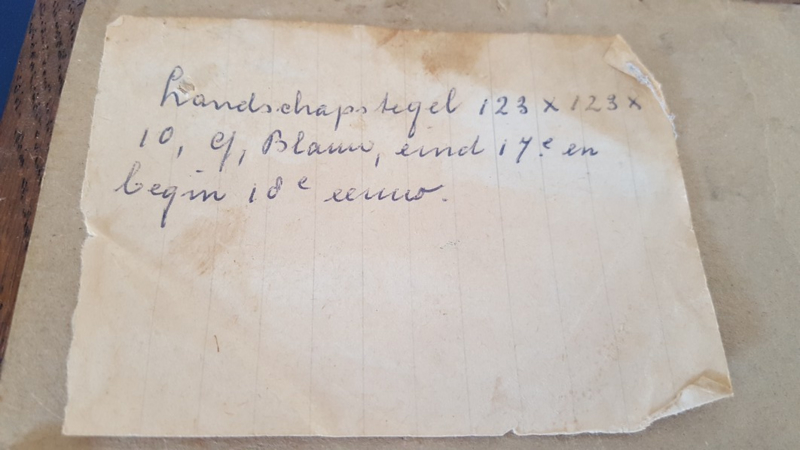 Landschapstegel 123 x 123 x
10, Blauw, eind 17e en
begin 18e eeuw.